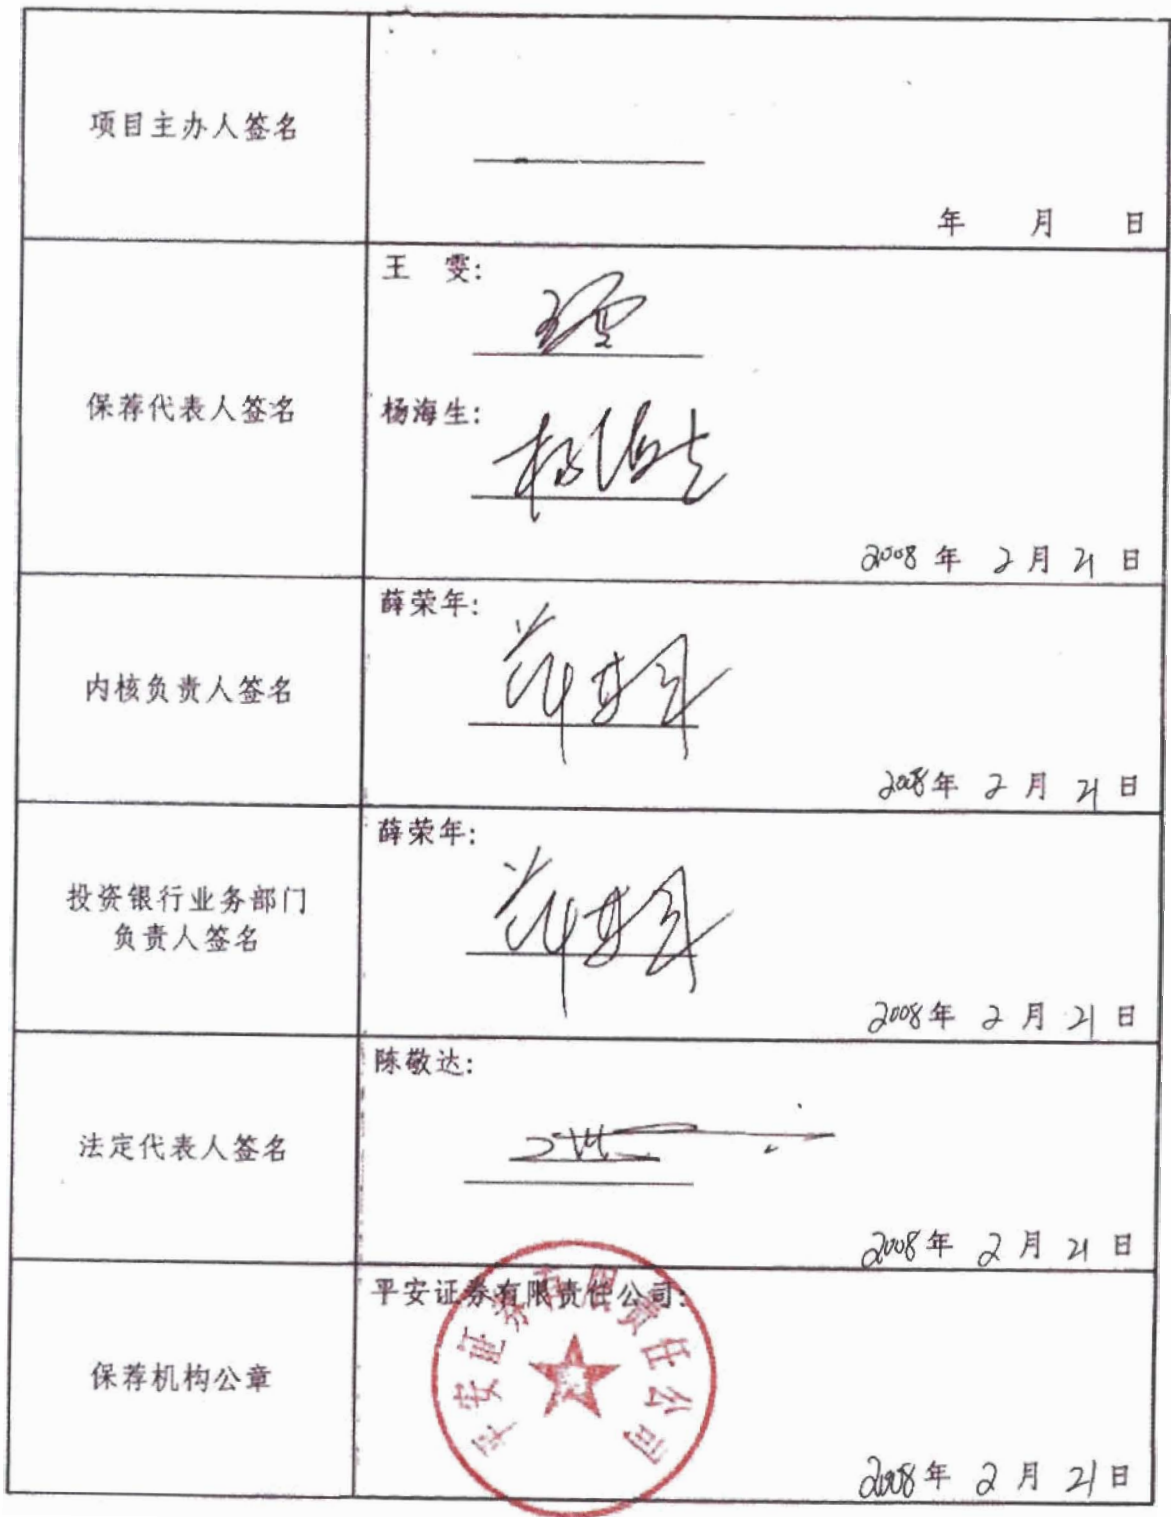 项目主办人签名
年 月 日
保荐代表人签名
王 雯:
王雯
杨海生:
杨海生
2008 年 2 月 21 日
内核负责人签名
薛荣年:
薛荣年
2008 年 2 月 21 日
投资银行业务部门
负责人签名
薛荣年:
薛荣年
2008 年 2 月 21 日
法定代表人签名
陈敬达:
2008 年 2 月 21 日
保荐机构公章
平安证券有限责任公司:
平安证券有限责任公司
2008 年 2 月 21 日